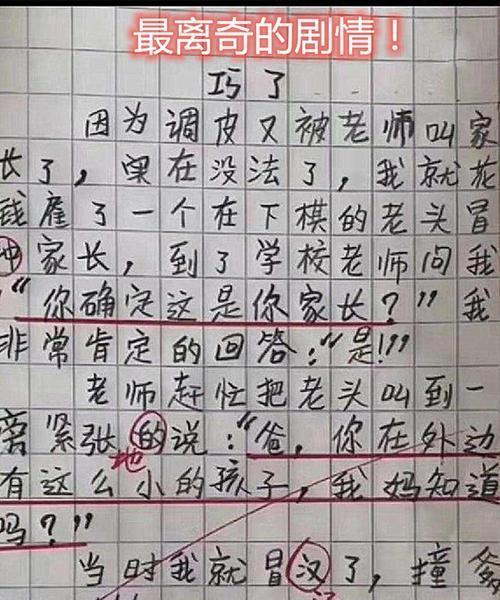 最离奇的剧情！
巧了
因为调皮又被老师叫家
长了，果在没法了，我就花
钱雇了一个在下棋的老头冒
冲家长，到了学校老师问我
“你确定这是你家长？”我
非常肯定的回答：“是！！”
老师赶忙把老头叫到一
离紧张的说：“爸，你在外边
地
有这么小的孩子，我妈知道
吗？”
当时我就冒汉了，撞爹